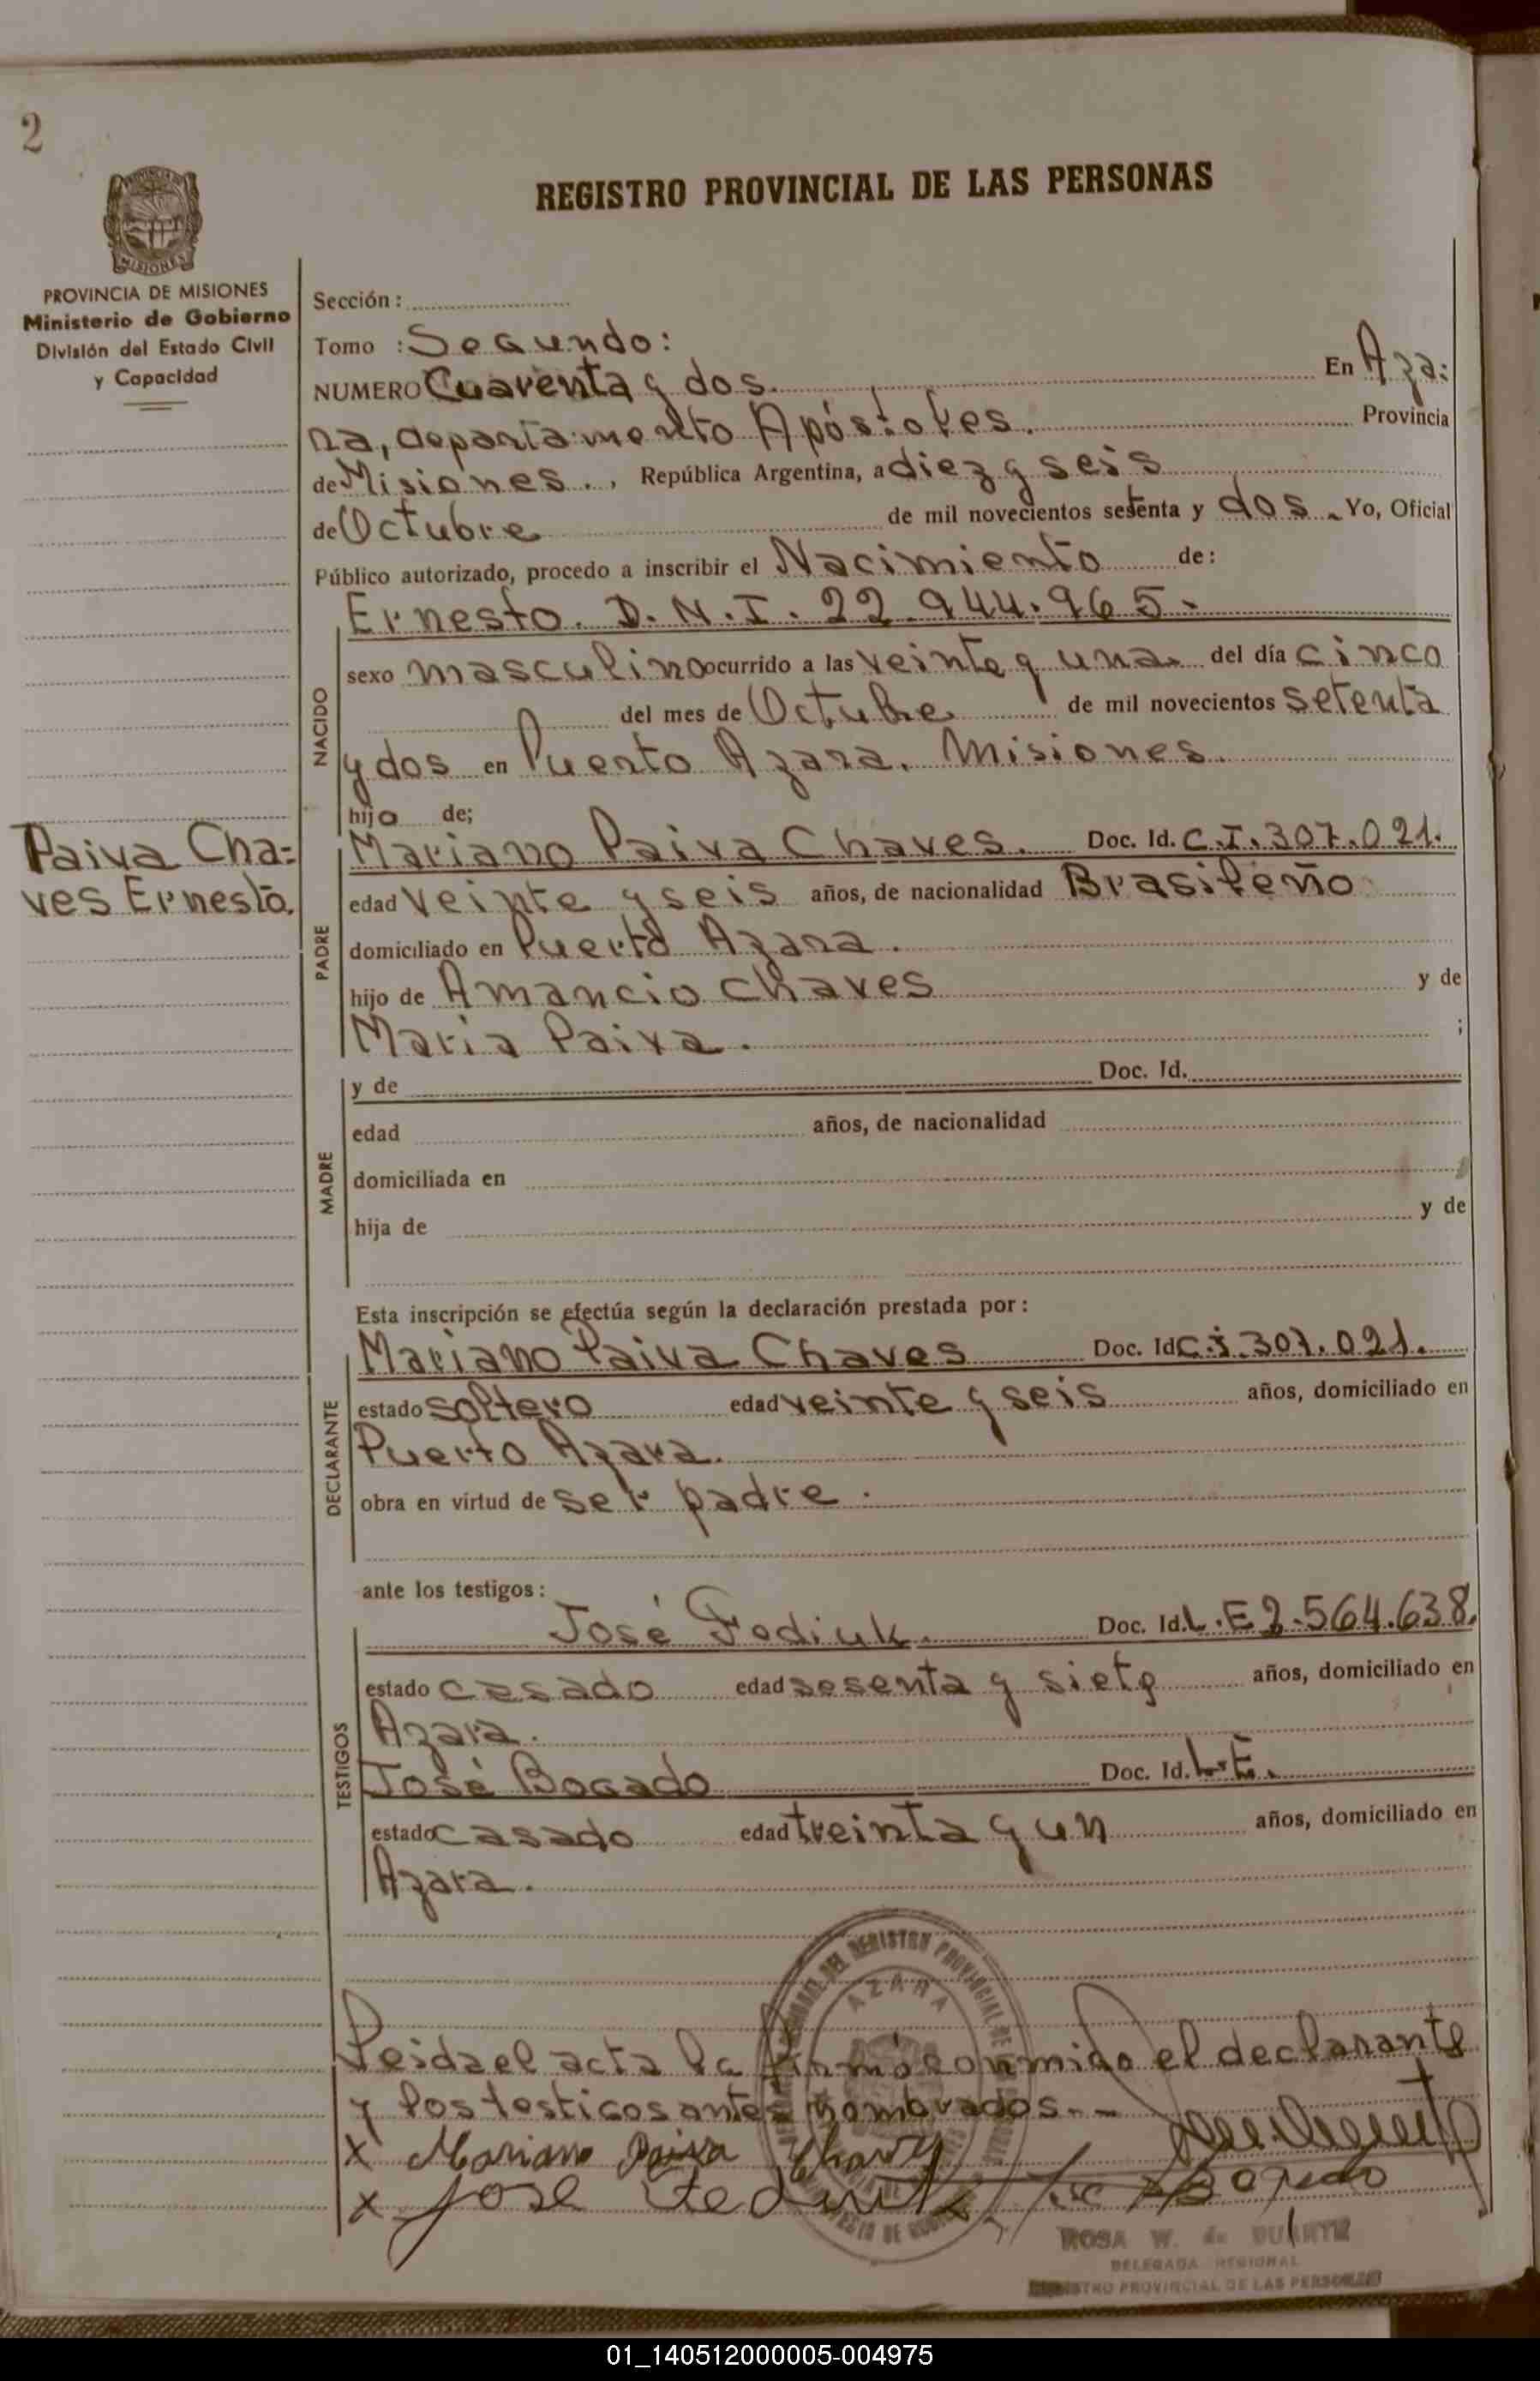 2
PROVINCIA DE MISIONES
Ministerio de Gobierno
División del Estado Civil
y Capacidad
REGISTRO PROVINCIAL DE LAS PERSONAS
Sección:
Tomo : Segundo:
NUMERO Cuarenta y dos. En Aza:
ra, departamento Apóstoles. Provincia
de Misiones., República Argentina, a diez y seis
de Octubre de mil novecientos setenta y dos. Yo, Oficial
Público autorizado, procedo a inscribir el Nacimiento de:
Ernesto. D.N.I. 22.944.965.
NACIDO
sexo masculino ocurrido a las veinte y una. del día cinco
del mes de Octubre de mil novecientos setenta
y dos en Puerto Azara. Misiones.
hijo de;
Paiva Cha=
ves Ernesto.
PADRE
Mariano Paiva Chaves. Doc. Id. C.I. 307.021.
edad veinte y seis años, de nacionalidad Brasileño
domiciliado en Puerto Azara.
hijo de Amancio Chaves y de
Maria Paiva. ;
MADRE
y de Doc. Id.
edad años, de nacionalidad
domiciliada en
hija de y de
Esta inscripción se efectúa según la declaración prestada por:
DECLARANTE
Mariano Paiva Chaves Doc. Id C.I. 307.021.
estado soltero edad veinte y seis años, domiciliado en
Puerto Azara.
obra en virtud de ser padre.
ante los testigos:
TESTIGOS
José Fediuk. Doc. Id. L.E 2.564.638.
estado casado edad sesenta y siete años, domiciliado en
Azara.
José Bogado Doc. Id. L.E.
estado casado edad treinta y un años, domiciliado en
Azara.
AZARA
Leida el acta la firmó conmigo el declarante
y los testigos antes nombrados.--
x Mariano Paiva Chaves
x Jose Fediuk Bogado
ROSA W. de DUARTE
DELEGADA REGIONAL
REGISTRO PROVINCIAL DE LAS PERSONAS
01_140512000005-004975